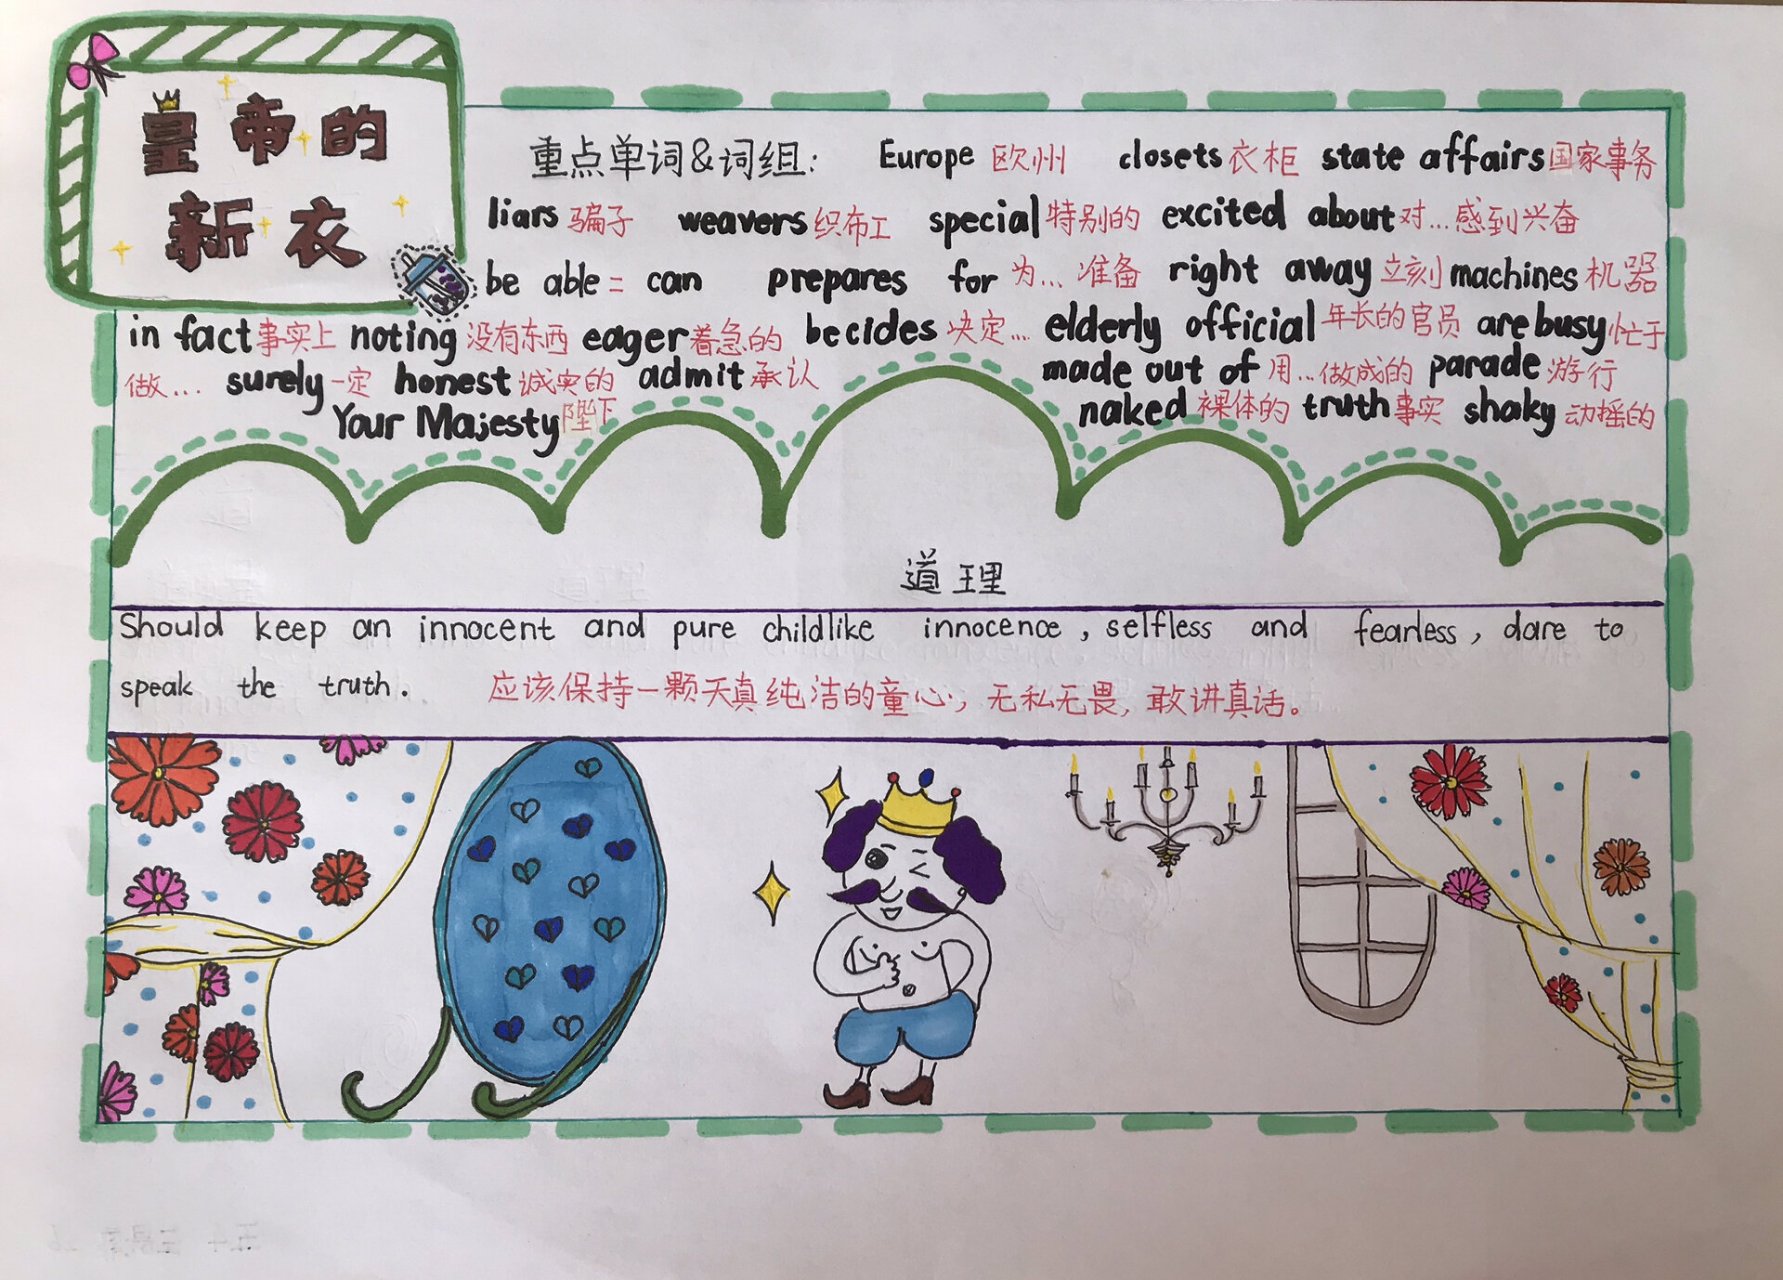 皇帝的
新衣
重点单词&词组: Europe 欧州 closets 衣柜 state affairs 国家事务
liars 骗子 weavers 织布工 special 特别的 excited about 对...感到兴奋
be able = can prepares for 为...准备 right away 立刻 machines 机器
in fact 事实上 noting 没有东西 eager 着急的 becides 决定... elderly official 年长的官员 are busy 忙于
做... surely 一定 honest 诚实的 admit 承认 made out of 用...做成的 parade 游行
Your Majesty 陛下 naked 裸体的 truth 事实 shaky 动摇的
道理
Should keep an innocent and pure childlike innocence, selfless and fearless, dare to
speak the truth. 应该保持一颗天真纯洁的童心,无私无畏,敢讲真话。